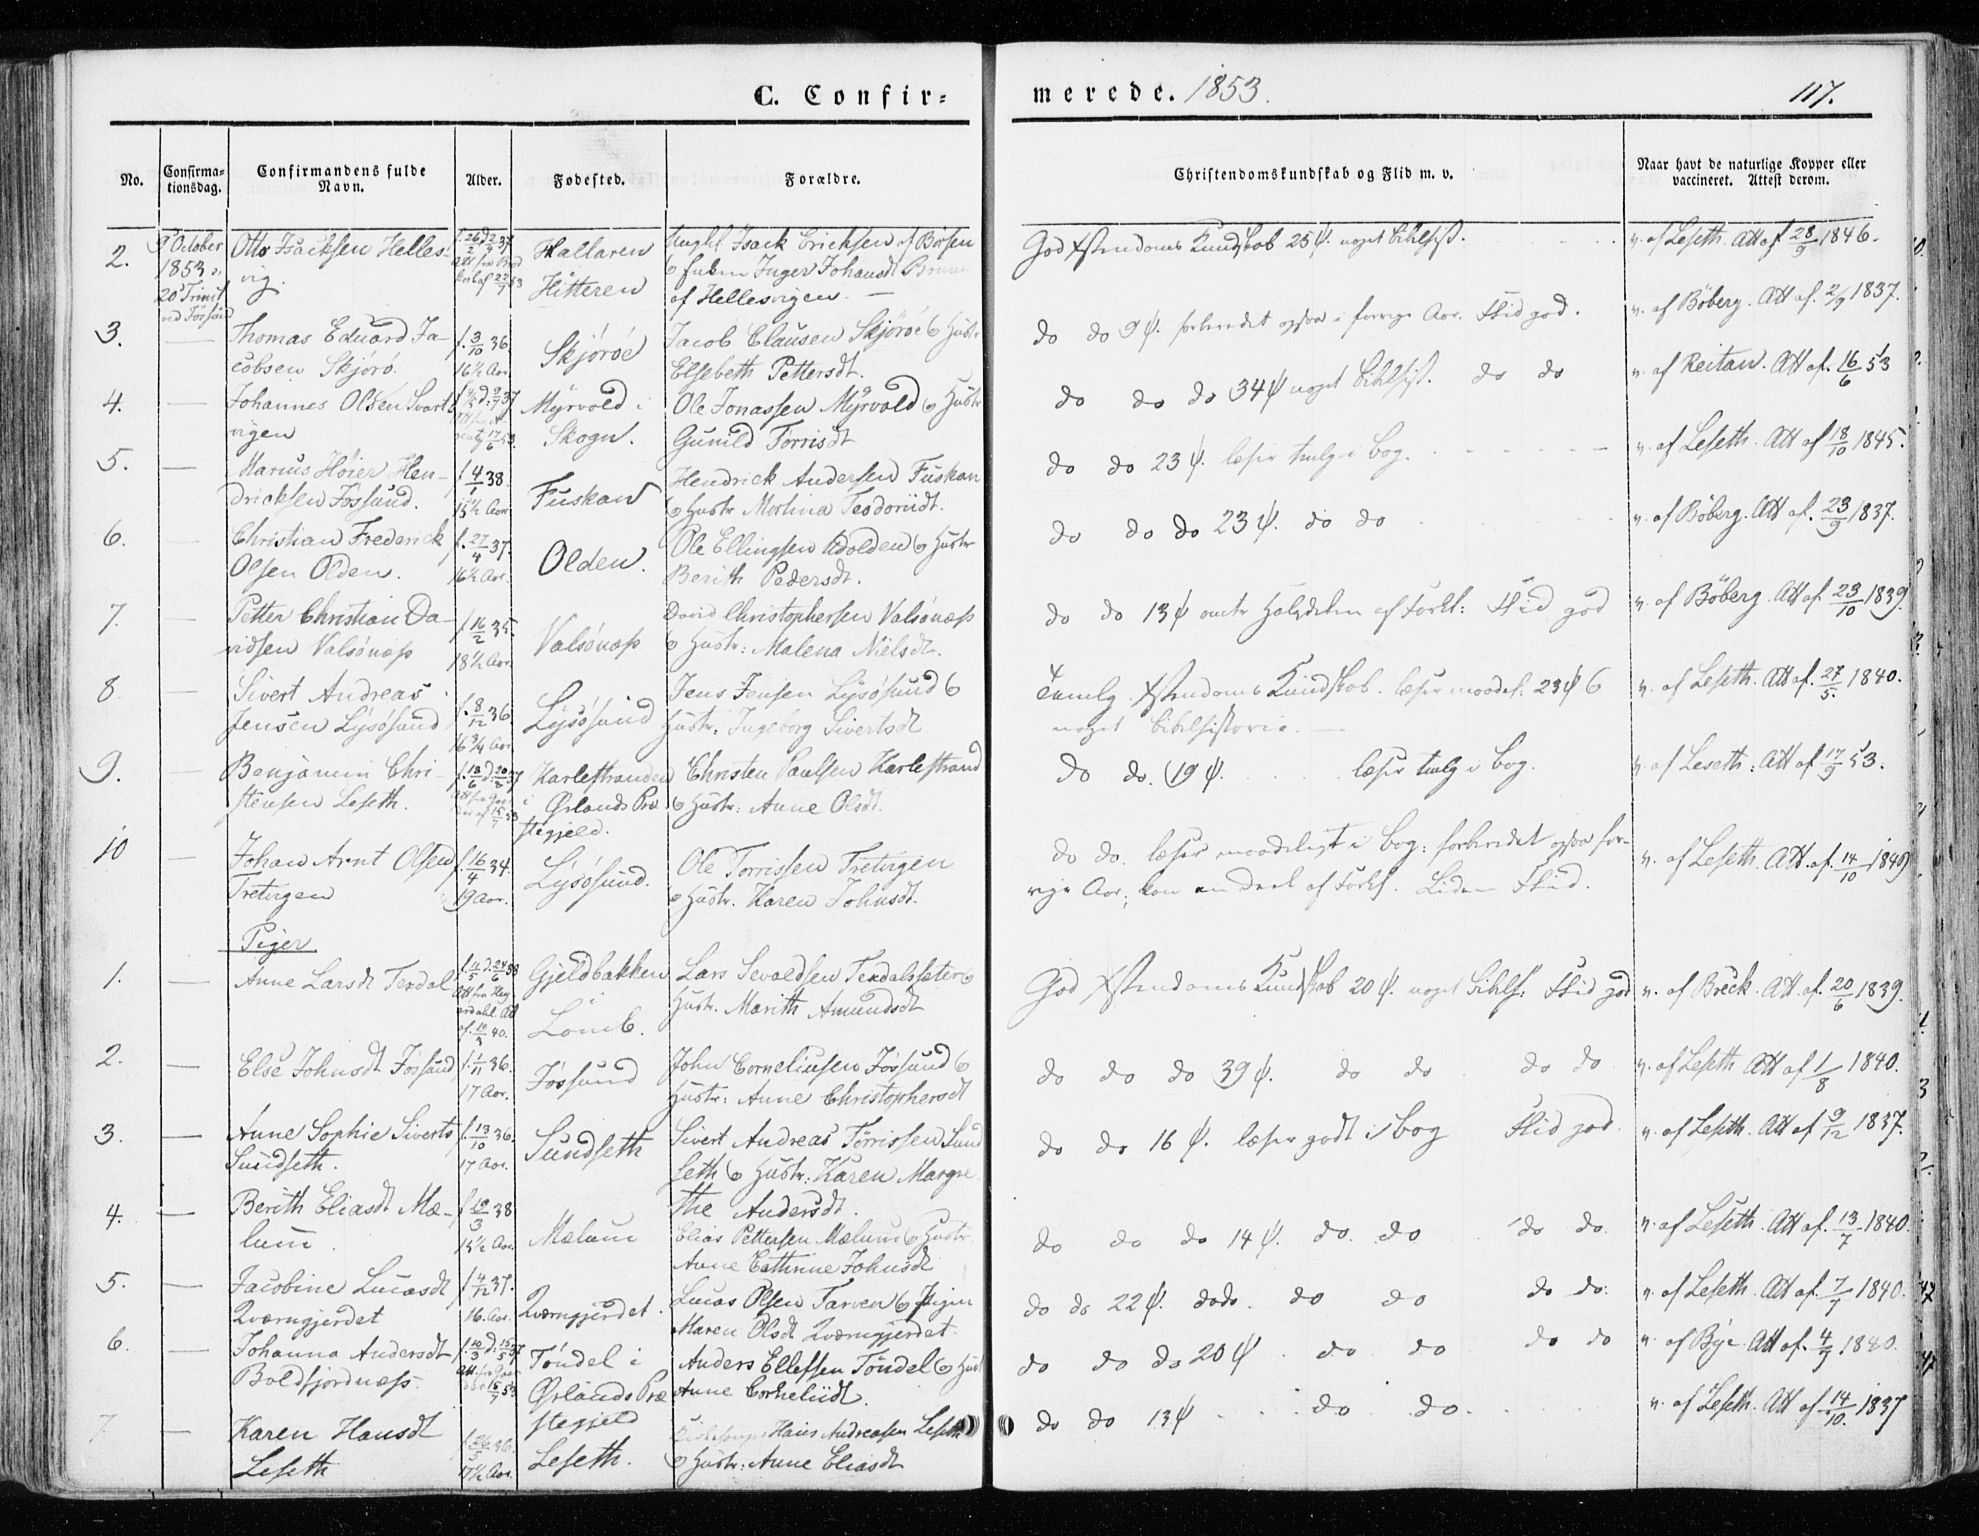 C. Confir-
merede. 1853.
117.
No.
Confirma-
tionsdag.
Confirmandens fulde
Navn.
Alder.
Fødested.
Forældre.
Christendomskundskab og Flid m. v.
Naar havt de naturlige Kopper eller
vaccineret. Attest derom.
2.
9 October
1853
20 Trinit
Otto Isacksen Helles-
vig.
Hallaren
Hitteren
Isack Ericksen af Børsen
Inger Johansdt
af Hellesvigen.
God Kundskab 25
v. af Leseth. Att af 28/9 1846.
3.
Thomas Eduard Ja-
cobsen Skjörö.
f. 3/10 36.
16½ Aar.
Skjöröe
Jacob Clausen Skjöröe & Hustr
Elsebeth Pettersdt.
do do 9 forberedet ogsaa i forrige Aar. Flid god.
v. af Böberg. Att af. 2/9 1837.
4.
Johannes Olsen Svart
vigen
Myrvold i
Skogn.
Ole Jonassen Myrvold & Hustr
Gunild Torrisdt
do do do 34 noget do do
v. af Reitan. Att af. 16/6 53
5.
Marius Höier Hen-
dricksen Fössund.
f. 4/1 38.
15½ Aar
Fuskan
Hendrick Andersen Fuskan
& Hustr Martina Teodoriidt.
do do 23 læser i Bog.
v. af Leseth. Att af 18/10 1845.
6.
Christian Frederick
Olsen Olden.
f. 27/4 37.
16½ Aar.
Olden.
Ole Ellingsen Adolden & Hustr
Berith Pedersdt.
do do do 23 do do
v. af Böberg. Att af. 23/9 1837.
7.
Petter Christian Da-
vidsen Valsönæss
f. 16/2 35.
18½ Aar.
Valsönæss
David Christophersen Valsönæss
& Hustr: Malena Nielsdt.
do do 13 af Forkl: Flid god
v. af Böberg. Att af. 23/10 1839.
8.
Sivert Andreas
Jensen Lysösund
f. 8/12 36
16¾ Aar
Lysösund
Jens Jensen Lysösund &
Hustr. Ingeborg Sivertsdt
Kundskab. læser 23 &
noget Bibelhistorie.
v. af Leseth. Att af. 27/5. 1840.
9.
Benjamin Chri-
stensen Leseth.
Karlestranden
i Ørlands Præ
stegjeld.
Christen Paulsen Karlestrand
& Hustr: Anne Olsdt.
do do. 19 læser i Bog.
v. af Leseth: Att af 17/9 53.
10
Johan Arnt Olsen
Tretvigen
f. 16/4 34.
19 Aar.
Lysösund.
Ole Torrissen Tretvigen
& Hustr. Karen Johnsdt.
do do. læser maadeligt i Bog: forberedet ogsaa for-
rige Aar; kan en Deel af Forkl. Liden Flid.
v. af Leseth. Att. af. 14/10 1849
Piger
1.
Anne Larsdt Texdal
Gjeldbakken
Lomb.
Lars Sevaldsen Texdalsæter &
Hustr. Marith Amundsdt
God Kundskab 20 noget Flid god
v. af Breck. Att af. 20/6 1839.
2.
Else Johnsdt Fössund
f. 1/11 36.
17 Aar.
Fössund
John Corneliusen Fössund &
Hustr: Anne Christophersdt
do do do 39 do do do do
v. af Leseth Att af 1/8 1840.
3.
Anne Sophie Siverts
Sundseth.
f. 13/10 36.
17 Aar.
Sundseth
Sivert Andreas Torrissen Sund
seth & Hustr: Karen Margre
the Andersdt.
do do 16 læser godt i Bog Flid god.
v. af Leseth. Att af 9/12 1837.
4.
Berith Eliasdt Mæ-
lum.
15½ Aar.
Mælum
Elias Pettersen Mælum & Hustr.
Anne Cathrine Johnsdt
do do do 14 do. do do do.
v. af Leseth. Att af. 13/7 1840.
5.
Jacobine Lucasdt
Qværngjerdet
f. 4/12 37.
16. Aar.
Qværngjerdet.
Lucas Olsen Tarven & Pigen
Maren Olsdt Qværngjerdet.
do do 22 dodo. do do do do.
v. af Leseth. Att af. 7/7 1840.
6.
Johanna Andersdt
Boldfjordnæss.
Töndel i
Ørlands Præ
stegjeld
Anders Ellefsen Töndel & Hust
Anne Corneliidt.
do do do 20 do do do do
v. af Bye. Att af. 4/9 1840.
7
Karen Hansdt
Leseth
f. 26/5 36.
17½ Aar.
Leseth.
Hans Andreasen Leseth
& Hustr: Anne Eliasdt
do do 13 do do.
v. af Leseth. Att af 14/10. 1837